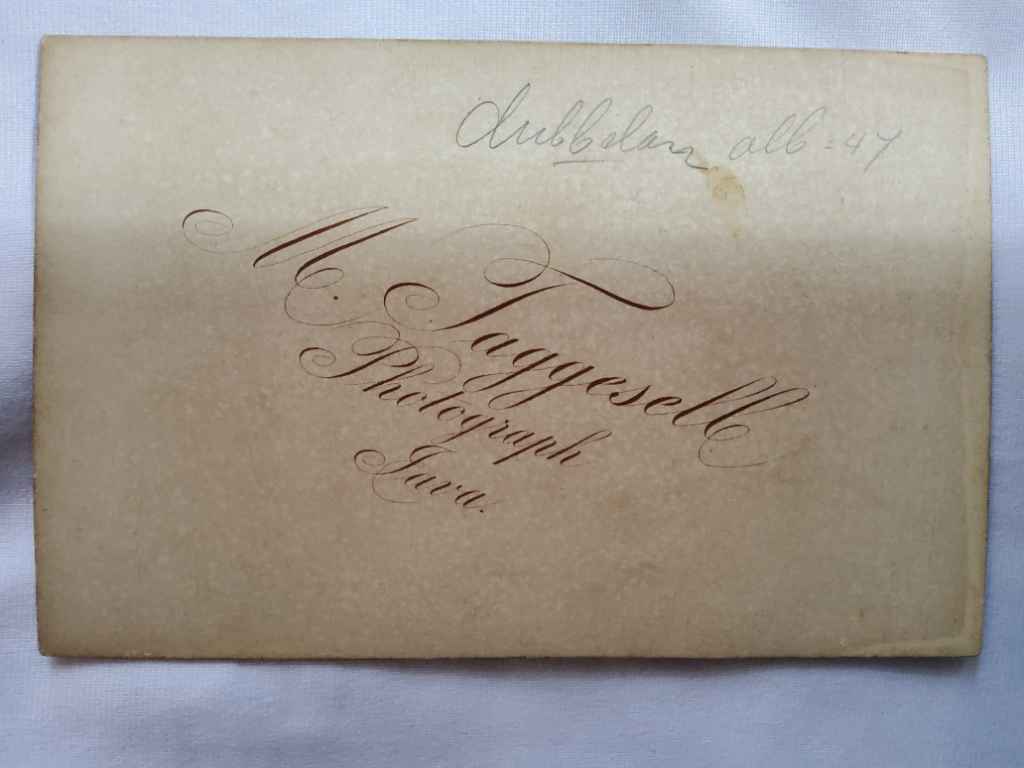 dubbelan alb = 47
M. Taggesell
Photograph
Java.